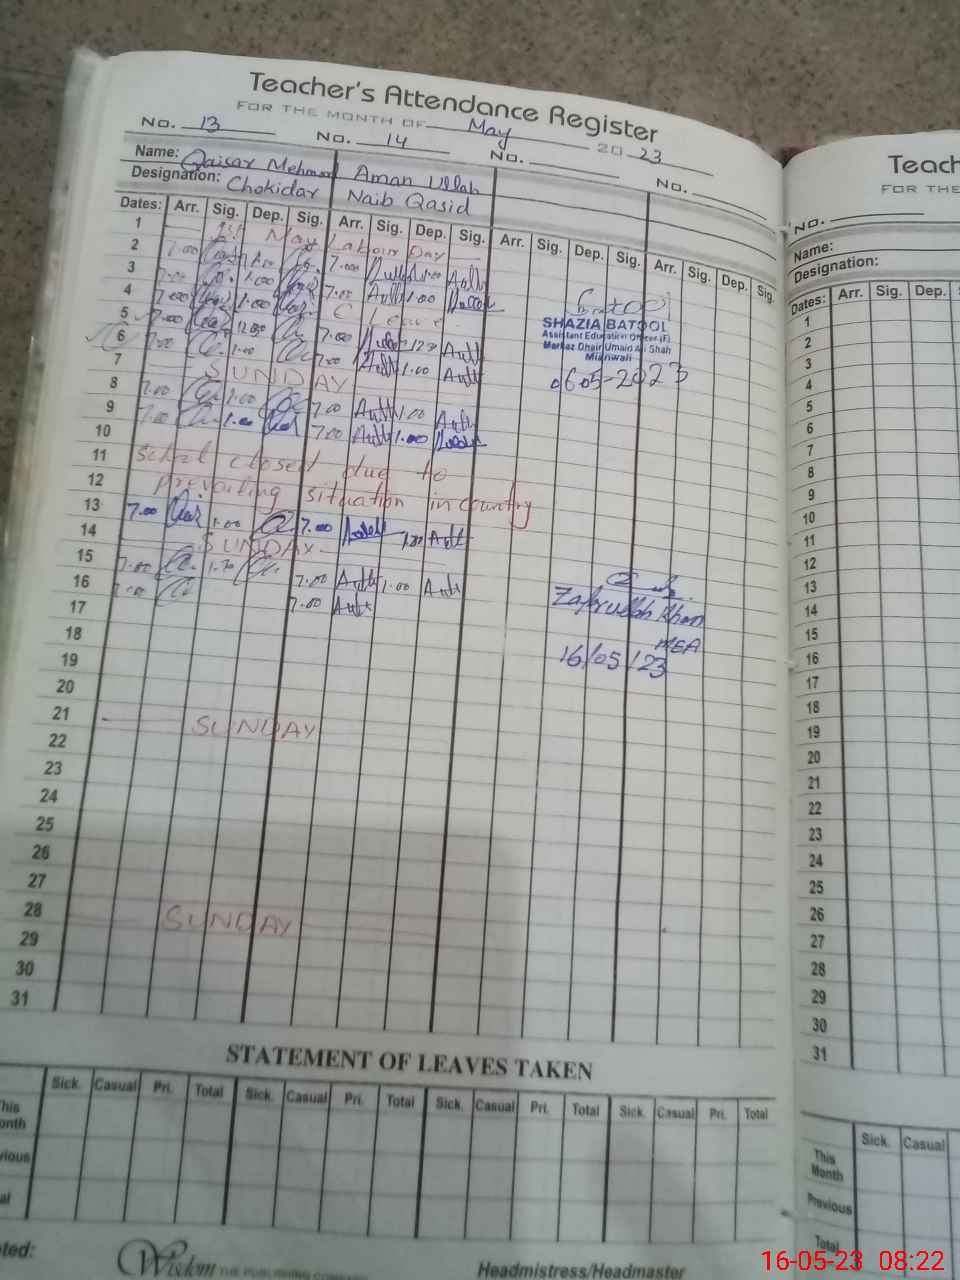 Teacher's Attendance Register
FOR THE MONTH OF May 20 23
No. 13 No. 14 No. No.
Name: Qaisar Mehmood Aman Ullah
Designation: Chokidar Naib Qasid
Dates: Arr. Sig. Dep. Sig. Arr. Sig. Dep. Sig. Arr. Sig. Dep. Sig. Arr. Sig. Dep. Sig.
1 1st May Labour Day
2 7.00 1.00 7.00 1.00
3 7.00 1.00 7.00 1.00
4 7.00 1.00 C Leave
5 7.00 7.00
6 7.00 1.00 7.00 1.00
7 SUNDAY
8 7.00 1.00 7.00 1.00
9 7.00 1.00 7.00 1.00
10
11 School closed due to
12 prevailing situation in country
13 7.00 1.00 7.00
14 SUNDAY
15 7.00 7.00 1.00
16 7.00 7.00
17
18
19
20
21 SUNDAY
22
23
24
25
26
27
28 SUNDAY
29
30
31
SHAZIA BATOOL
Assistant Education Officer (F)
Markaz Dhair Umaid Ali Shah
Mianwali
06-05-2023
Zafrullah Khan
MEA
16/05/23
STATEMENT OF LEAVES TAKEN
Sick. Casual Pri. Total Sick. Casual Pri. Total Sick. Casual Pri. Total Sick. Casual Pri. Total
Wisdom THE PUBLISHING COMPANY
Headmistress/Headmaster
Teach
FOR THE
No.
Name:
Designation:
Dates: Arr. Sig. Dep.
1
2
3
4
5
6
7
8
9
10
11
12
13
14
15
16
17
18
19
20
21
22
23
24
25
26
27
28
29
30
31
Sick. Casual
This
Month
Previous
Total
16-05-23 08:22